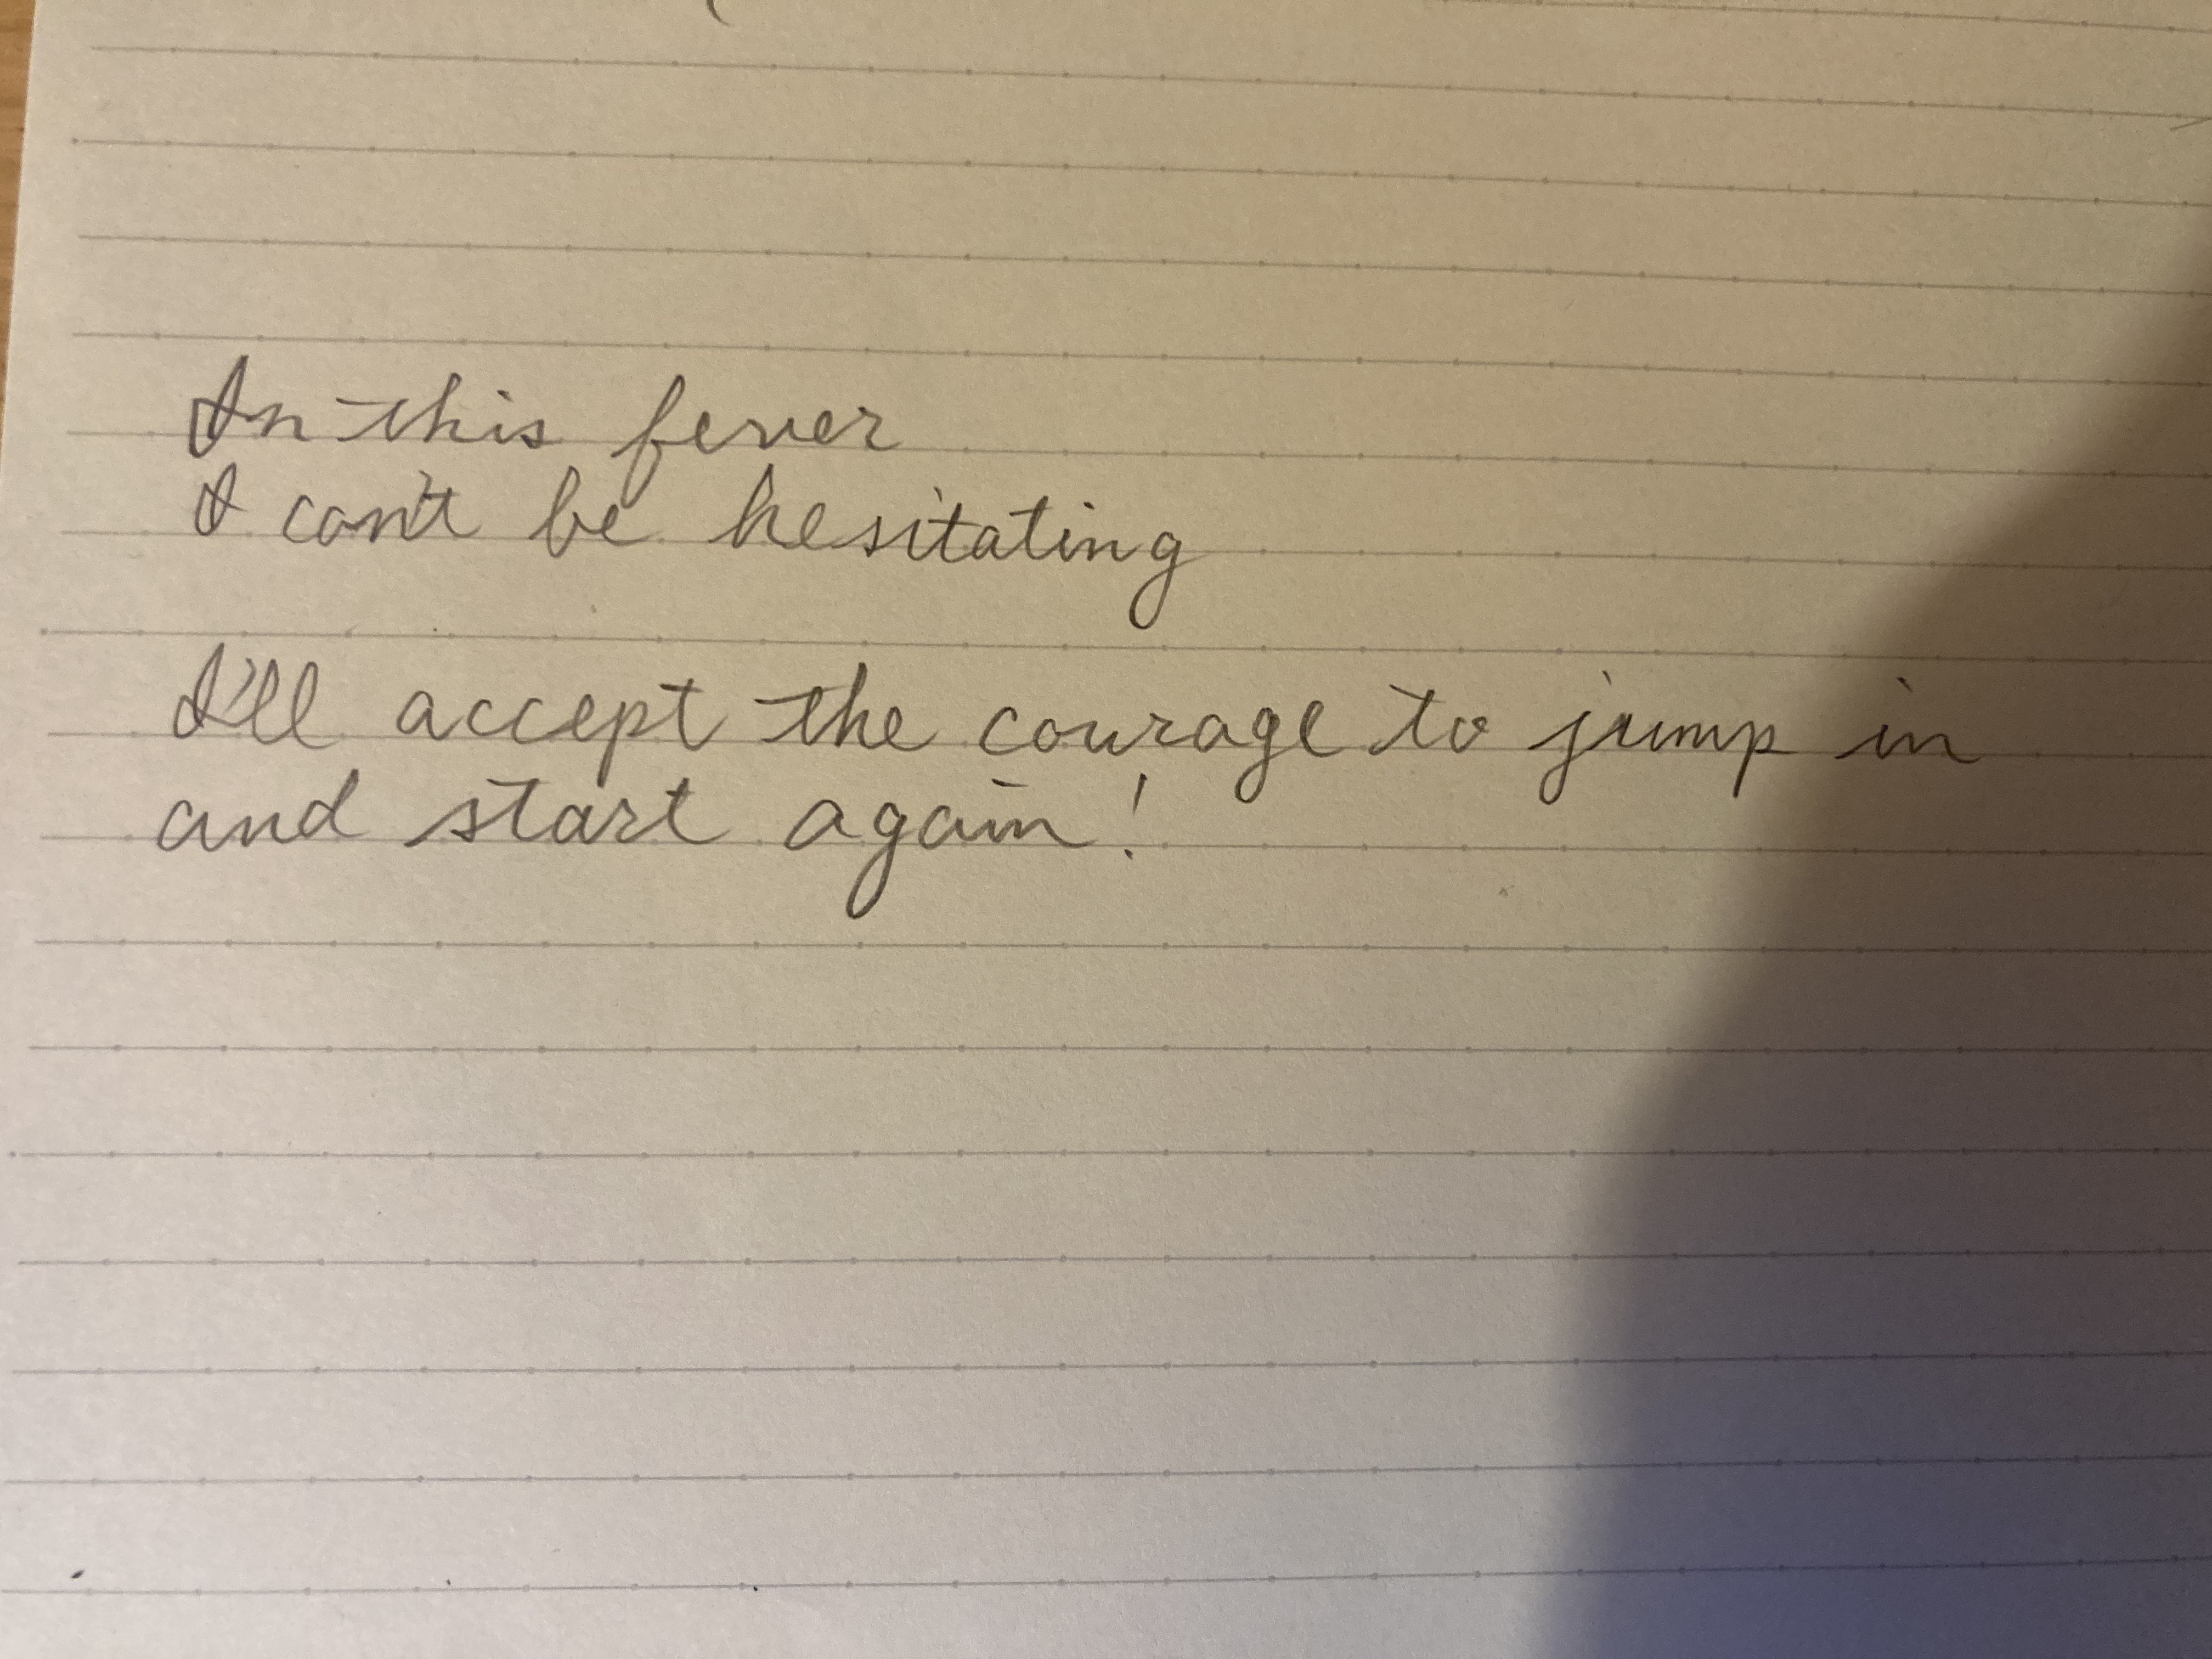 In this fever
I can't be hesitating
I'll accept the courage to jump in
and start again!